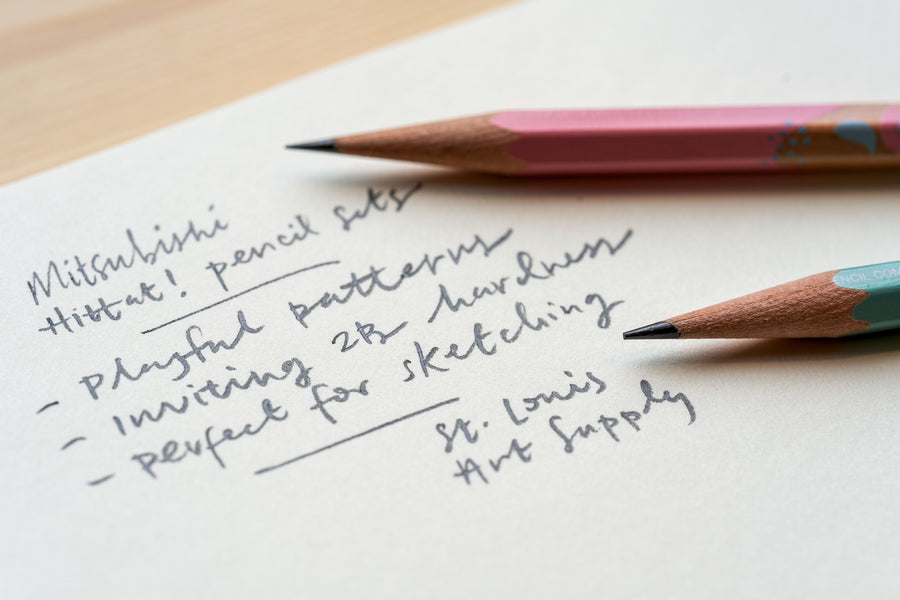 Mitsubishi
Hittat! pencil sets
- Playful patterns
- Inviting 2B hardness
- perfect for sketching
St. Louis
Art Supply
NCIL CO